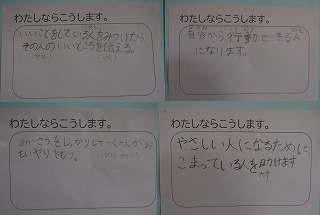 わたしならこうします。
いいことをしている人をみつけたら
その人のいいところを伝える。
わたしならこうします。
自分から行動できる人
になります。
わたしならこうします。
あいさつをし、かりして
もいやりをもつ。
わたしならこうします。
やさしい人になるために
こまっている人を助けます